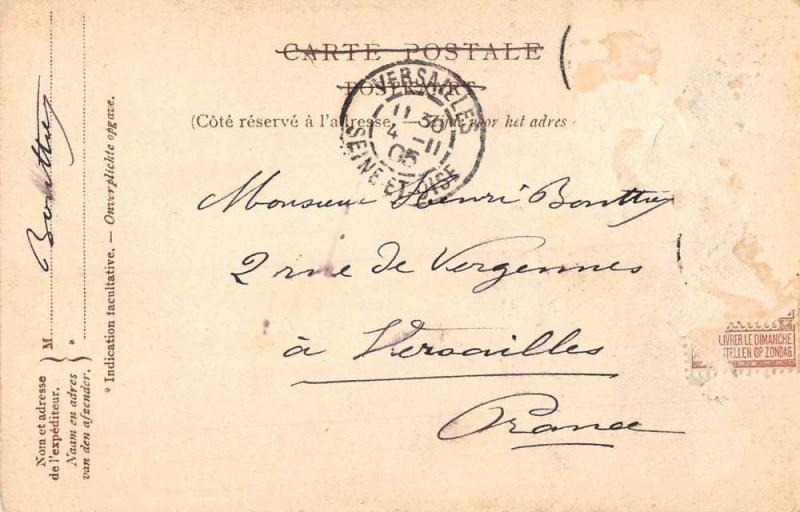 CARTE POSTALE
POSTKAART
(Côté réservé à l'adresse. — Zijde voor het adres
VERSAILLES
11 30
4 -11
05
SEINE ET OISE
Monsieur Henri
2 rue de Vergennes
à Versailles
France
LIVRER LE DIMANCHE
TELLEN OP ZONDAG
Nom et adresse
de l'expéditeur.
Naam en adres
van den afzender.
M
*
* Indication facultative. — Onverplichte opgave.